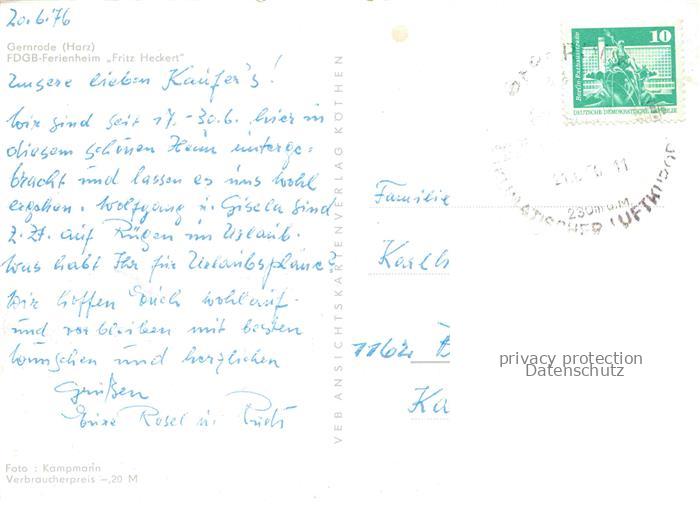 20.6.76
Gernrode (Harz)
FDGB-Ferienheim „Fritz Heckert"
Unsere lieben Kaufer's!
Wir sind seit 17.-30.6. hier in
diesem schönen Heim unterge-
bracht und lassen es uns wohl
ergehen. Wolfgang u. Gisela sind
z.Zt. auf Rügen im Urlaub.
Was habt Ihr für Urlaubspläne?
Wir hoffen Euch wohlauf
und verbleiben mit besten
Wünschen und herzlichen
Grüßen
Eure Rosel u. Rudi
Foto : Kampmann
Verbraucherpreis –,20 M
VEB ANSICHTSKARTENVERLAG KÖTHEN
10
Berlin, Rathausstraße
DEUTSCHE DEMOKRATISCHE REPUBLIK
230m ü.M.
KLIMATISCHER LUFTKURORT
Familie
Karlh
1162 B
Ka
privacy protection
Datenschutz